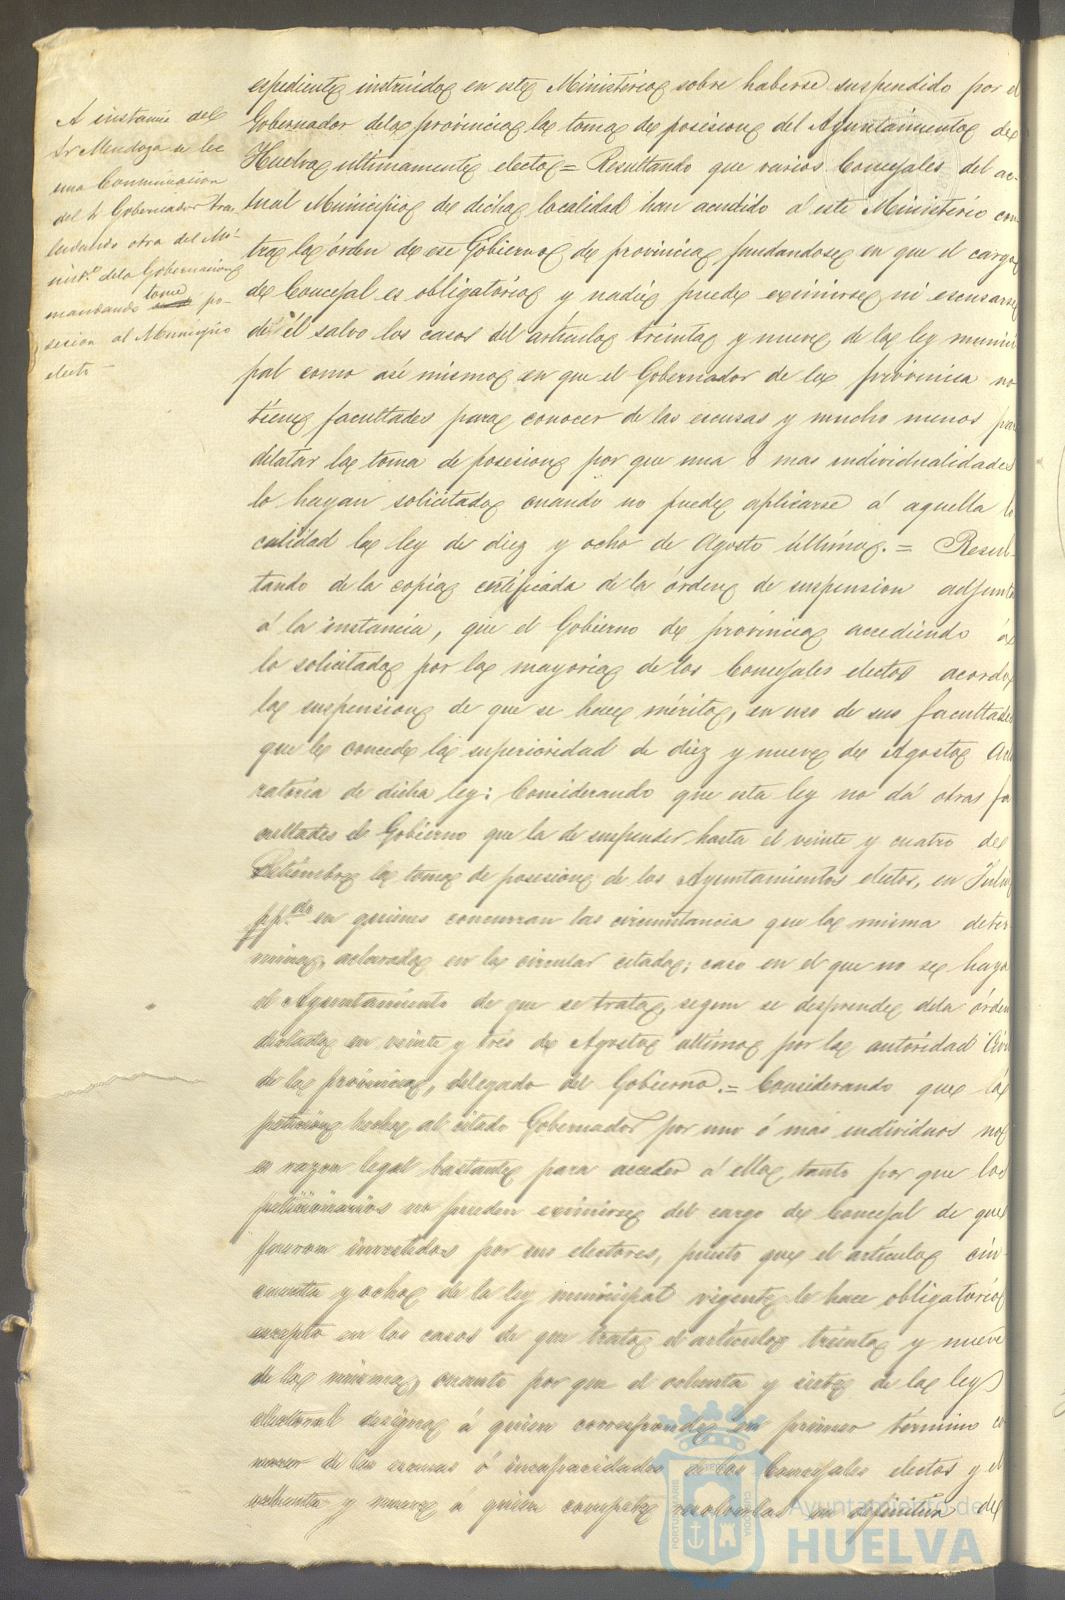 A instancia del
Sr Mendoza se lee
una Comunicacion
del Sr Gobernador tras-
ladando otra del Mi-
nist.º dela Gobernacion
mandando tome po-
sesion al Municipio
electo
espediente instruido en este Ministerio sobre haberse suspendido por el
Gobernador dela provincia la toma de posesion del Ayuntamiento de
Huelva ultimamente electo = Resultando que varios Concejales del ac-
tual Municipio de dicha localidad han acudido á este Ministerio con
tra la órden de ese Gobierno de provincia fundandose en que el cargo
de Concejal es obligatorio y nadie puede eximirse ni escusarse
de él salvo los casos del artículo treinta y nueve de la ley munici
pal como asé mismo en que el Gobernador de la provincia no
tiene facultades para conocer de las escusas y mucho menos para
dilatar la toma de posesion por que una ó mas individualidades
lo hayan solicitado cuando no puede aplicarse á aquella lo
calidad la ley de diez y ocho de Agosto último. = Resul-
tando de la copia certificada de la órden de suspension adjunta
á la instancia, que el Gobierno de provincia accediendo á
lo solicitado por la mayoria de los Concejales electos acordó
la suspension de que se hace mérito, en uso de sus facultades
que le concede la superioridad de diez y nueve de Agosto acla
ratoria de dicha ley: Considerando que esta ley no dá otras fa
cultades al Gobierno que la de suspender hasta el veinte y cuatro de
Setiembre la toma de posesion de los Ayuntamientos electos, en Julio
pp.do en quienes concurran las circunstancia que la misma deter-
mina, aclarada en la circular citada; caso en el que no se haya
el Ayuntamiento de que se trata, segun se desprende dela órden
dictada en veinte y tres de Agosto último por la autoridad Civil
de la provincia, delegado del Gobierno. = Considerando que la
peticion hecha al citado Gobernador por uno ó mas individuos no
es razon legal bastante para acceder á ella, tanto por que los
peticionarios no pueden eximirse del cargo de Concejal de que
fueron investidos por sus electores, puesto que el artículo cin-
cuenta y ocho de la ley municipal vigente le hace obligatorio
excepto en los casos de que trata el artículo treinta y nueve
de la misma, cuanto por que el ochenta y siete de la ley
electoral designa á quien corresponde en primer término co
nocer de las escusas ó incapacidades de los Concejales electos y el
ochenta y nueve á quien compete resolverlas en definitiva de
Ayuntamiento de
HUELVA